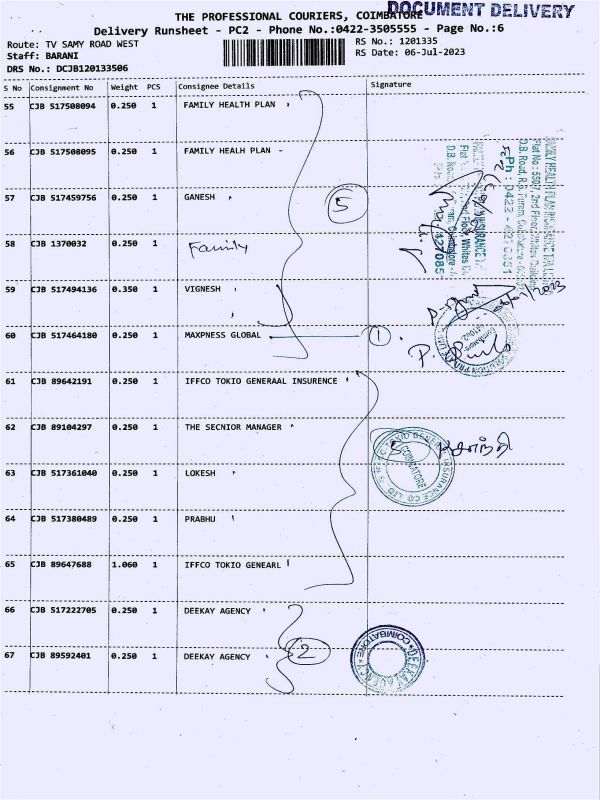 DOCUMENT DELIVERY
THE PROFESSIONAL COURIERS, COIMBATORE
Delivery Runsheet - PC2 - Phone No.:0422-3505555 - Page No.:6
Route: TV SAMY ROAD WEST
Staff: BARANI
DRS No.: DCJB120133506
RS No.: 1201335
RS Date: 06-Jul-2023
S No Consignment No Weight PCS Consignee Details Signature
55 CJB 517508094 0.250 1 FAMILY HEALTH PLAN
56 CJB 517508095 0.250 1 FAMILY HEALH PLAN
57 CJB 517459756 0.250 1 GANESH
5
58 CJB 1370032 0.250 1 Family
59 CJB 517494136 0.350 1 VIGNESH
60 CJB 517464180 0.250 1 MAXPNESS GLOBAL 1
61 CJB 89642191 0.250 1 IFFCO TOKIO GENERAAL INSURENCE
62 CJB 89104297 0.250 1 THE SECNIOR MANAGER
5
63 CJB 517361040 0.250 1 LOKESH
64 CJB 517380489 0.250 1 PRABHU
65 CJB 89647688 1.060 1 IFFCO TOKIO GENEARL
66 CJB 517222705 0.250 1 DEEKAY AGENCY
67 CJB 89592401 0.250 1 DEEKAY AGENCY 2
COIMBATORE
DEEKAY AGENCY